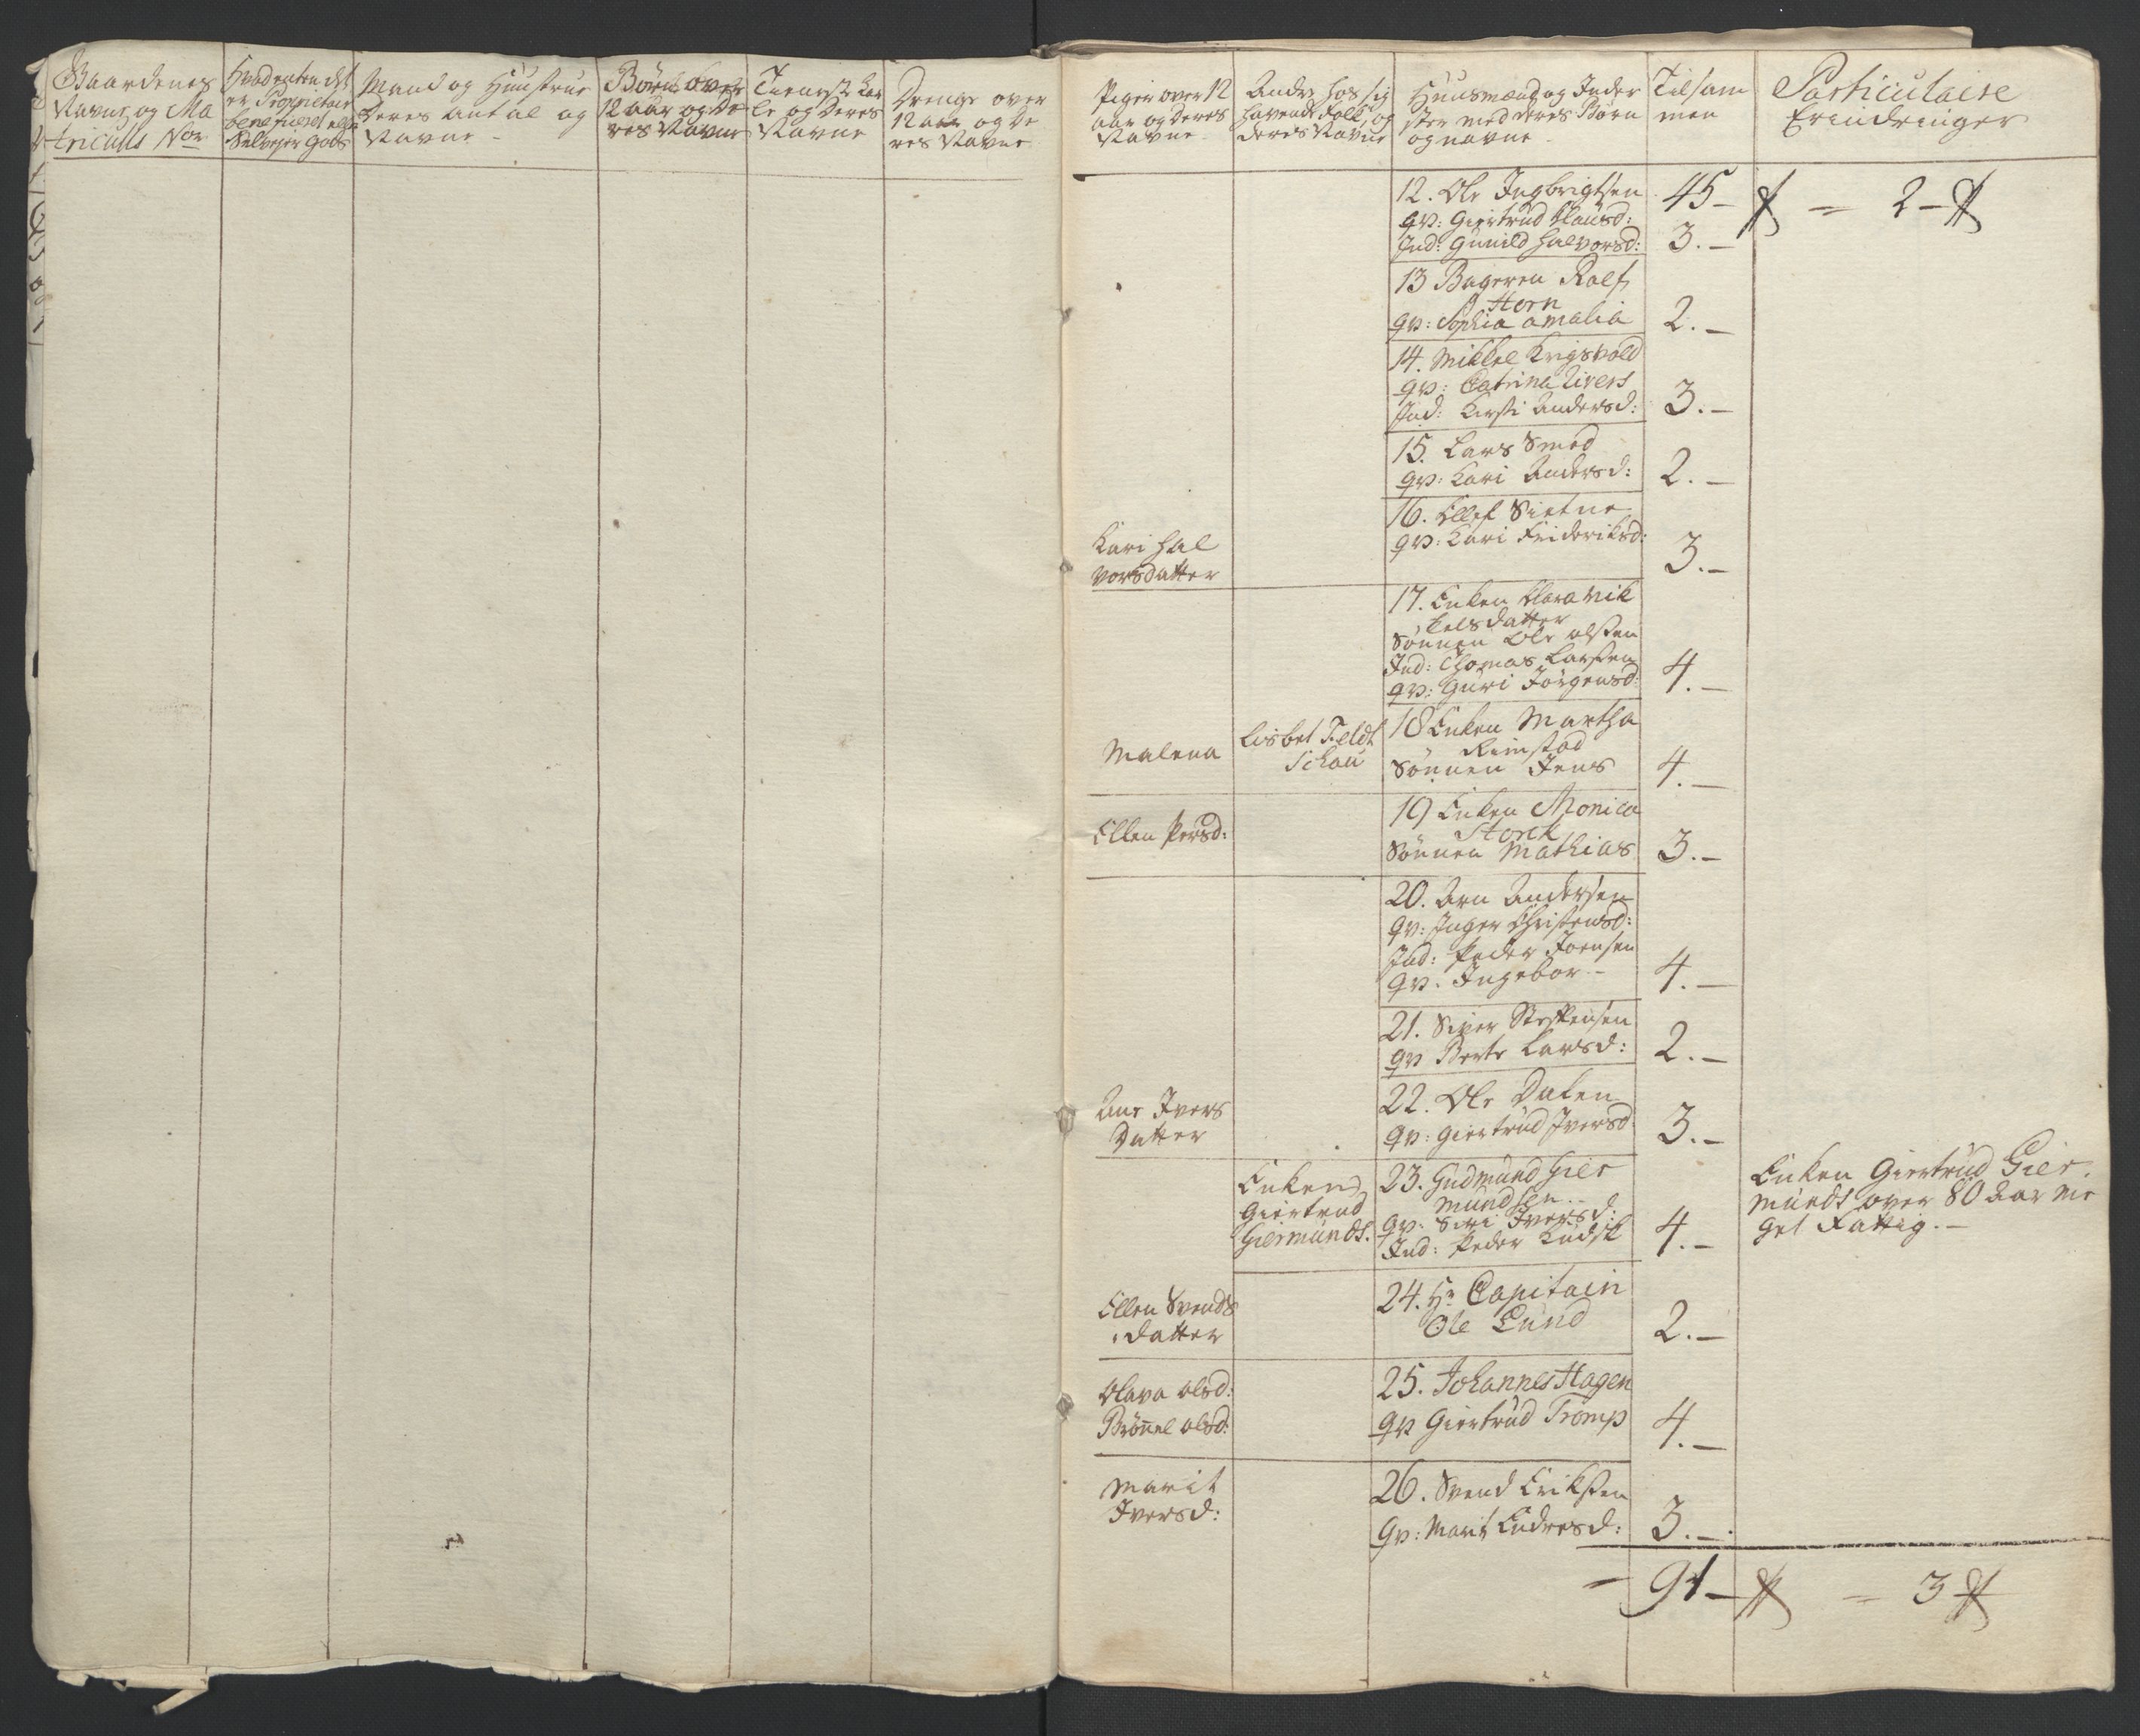 Gaardenes
Navne og Ma
triculs Nor
Hvad enten det
er Proprietair
beneficeret eller
Selvejer gods
Mand og Hustrue
deres antal og
Navne
Børn over
12 aar og de
res Navne
Tieneste Kar
le og deres
Navne
Drenge over
12 aar og de
res Navne
Piger over 12
aar og deres
Navne
Andre hos sig
havende folk, og
deres Navne
Huusmænd og Inder
ster med deres Børn
og navne
Tilsam
men
Particulaire
Erindringer
12. Ole Ingbrigtsen 45 - 2 -
qv: Giertrud Clausd:
Ind: Gunild Halvorsd: 3. -
13 Bageren Ralf
Horn
qv: Sophia Amalia 2. -
14. Mikkel Krigsvold
qv: Catrina Sivers
Ind: Kirsti Andersd: 3. -
15. Lars Smed
qv: Kari Andersd: 2. -
16. Ellef Sietne
Kari Hal
vorsdatter
qv: Kari Frideriksd: 3. -
17. Enken Clara Mik
kelsdatter
Sønnen Ole Olsen
Ind: Thomas Larsen
qv: Guri Jörgensd: 4. -
Malena
Lisbet Feldt
Schau
18 Enken Martha
Rimstad
Sønnen Jens 4. -
Ellen Persd:
19 Enken Monica
Stork
Sønnen Mathias 3. -
20. Arn Andersen
qv: Inger Christensd:
Ind: Peder Joensen
qv. Ingebor - 4. -
21. Siver Steffensen
qv Berte Larsd: 2. -
Ane Ivers
Datter
22. Ole Dalen
qv: Giertrud Iversd 3. -
Enken
Giertrud
Giermunds.
23. Gudmund Gier
mundsen -
qv. Siri Iversd:
Ind: Peder Kudsk 4. -
Enken Giertrud Gier
munds over 80 aar me
get Fattig. -
Ellen Svends
datter
24. Hr Capitain
Ole Lund 2. -
Olava Olsd:
Brønnel Olsd:
25. Johannes Hagen
qv Giertrud Tromp 4. -
Marit
Iversd:
26. Svend Eriksen
qv: Marit Endresd: 3. -
= 91 - = 3